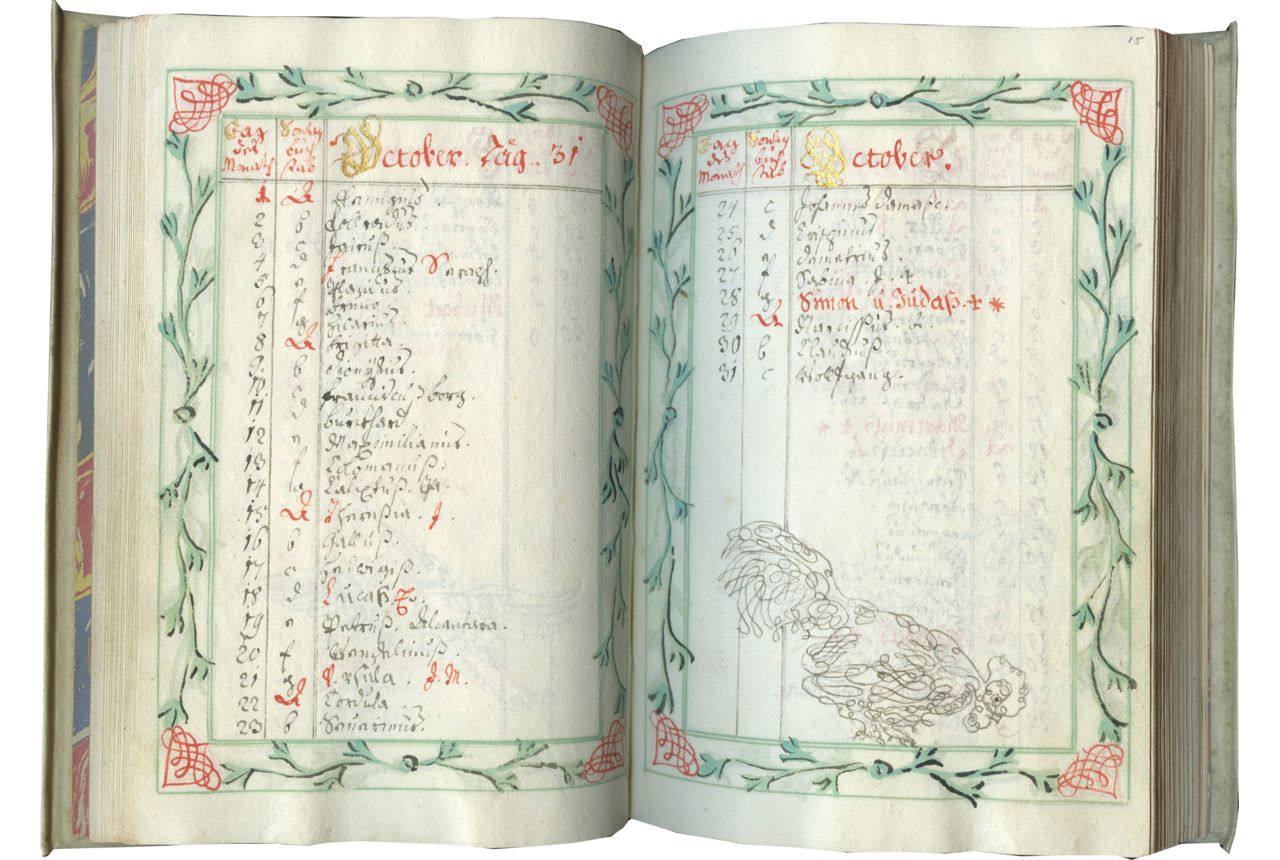 Tag des Monats Sontag buchstab October. Täg. 31
1 A Remigius
2 b
3 c Jairuß.
4 d Franciscus Seraph.
5 e Placidus.
6 f Bruno.
7 g Hilarius.
8 A Brigitta.
9. b Dionysius.
10 c Franciscus borg.
11 d burkhard.
12 e Maximilianus.
13 f Colomanuß.
14 g Calixtuß.
15 A Theresia. J.
16 b Galluß.
17 c Hedwigiß.
18 d Lucaß
19 e Petruß. Alcantara.
20 f Wendelinuß.
21 g Ursula. J. M.
22 A Cordula.
23 b Severinus.
15
Tag des Monats Sontag buchstab October.
24 c
25 d Crispinus
26 e Demetrius.
27 f Sabina.
28 g Simon u. Judaß. + *
29 A Narcissus. b.
30 b Claudiuß.
31 c Wolfgang.